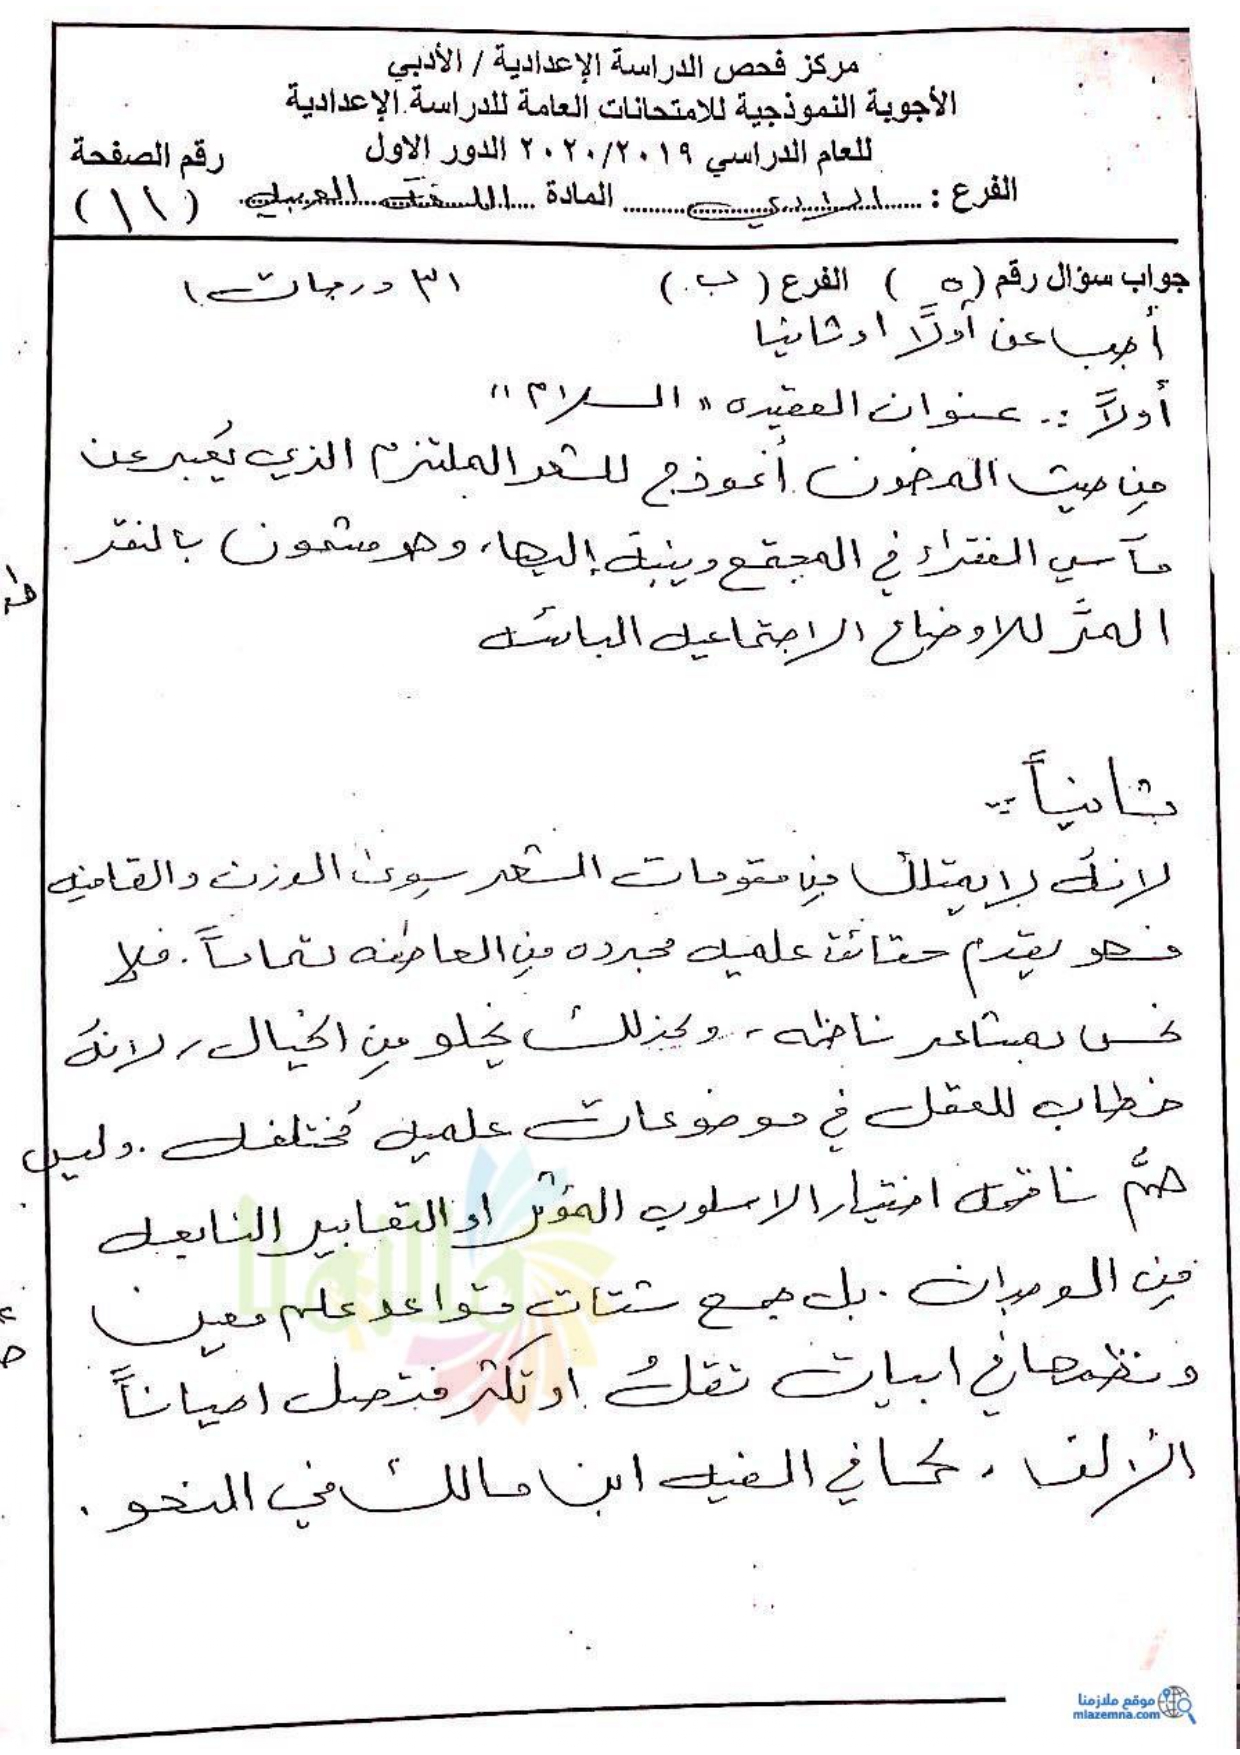 مركز فحص الدراسة الإعدادية / الأدبي
الأجوبة النموذجية للامتحانات العامة للدراسة الإعدادية
للعام الدراسي ٢٠٢٠/٢٠١٩ الدور الاول
رقم الصفحة
الفرع : الادبي المادة اللغة العربية (١١)
جواب سؤال رقم (٥) الفرع (ب) ٣١ درجات١
أجب عن أولاً او ثانيا
أولاً :. عنوان القصيده " السلام "
من حيث المضمون أنموذج للشعر الملتزم الذي يُعبر عن
مآسي الفقراء في المجتمع وينبه إليها، وهو مشحون بالنقد
المرَّ للاوضاع الاجتماعيه البائسه
ثانياً :-
لانهُ لا يمتلك من مقومات الشعر سوى الوزن والقافيه
فهو يقدم حقائق علميه مجرده من العاطفه تماماً . فلا
نحس بمشاعر ناظمه ، وكذلك يخلو من الخيال ، لانهُ
خطاب للعقل في موضوعات علميه مُختلفه . وليس
همُّ ناظمه اختيار الاسلوب المؤثر او التعابير النابعه
من الوجدان . بل جمع شتات قواعد علم معين
ونظمها في ابيات تقلُ او تكثر فتصل احياناً
الألف ، كما في الفيه ابن مالك في النحو .
موقع ملازمنا
mlazemna.com